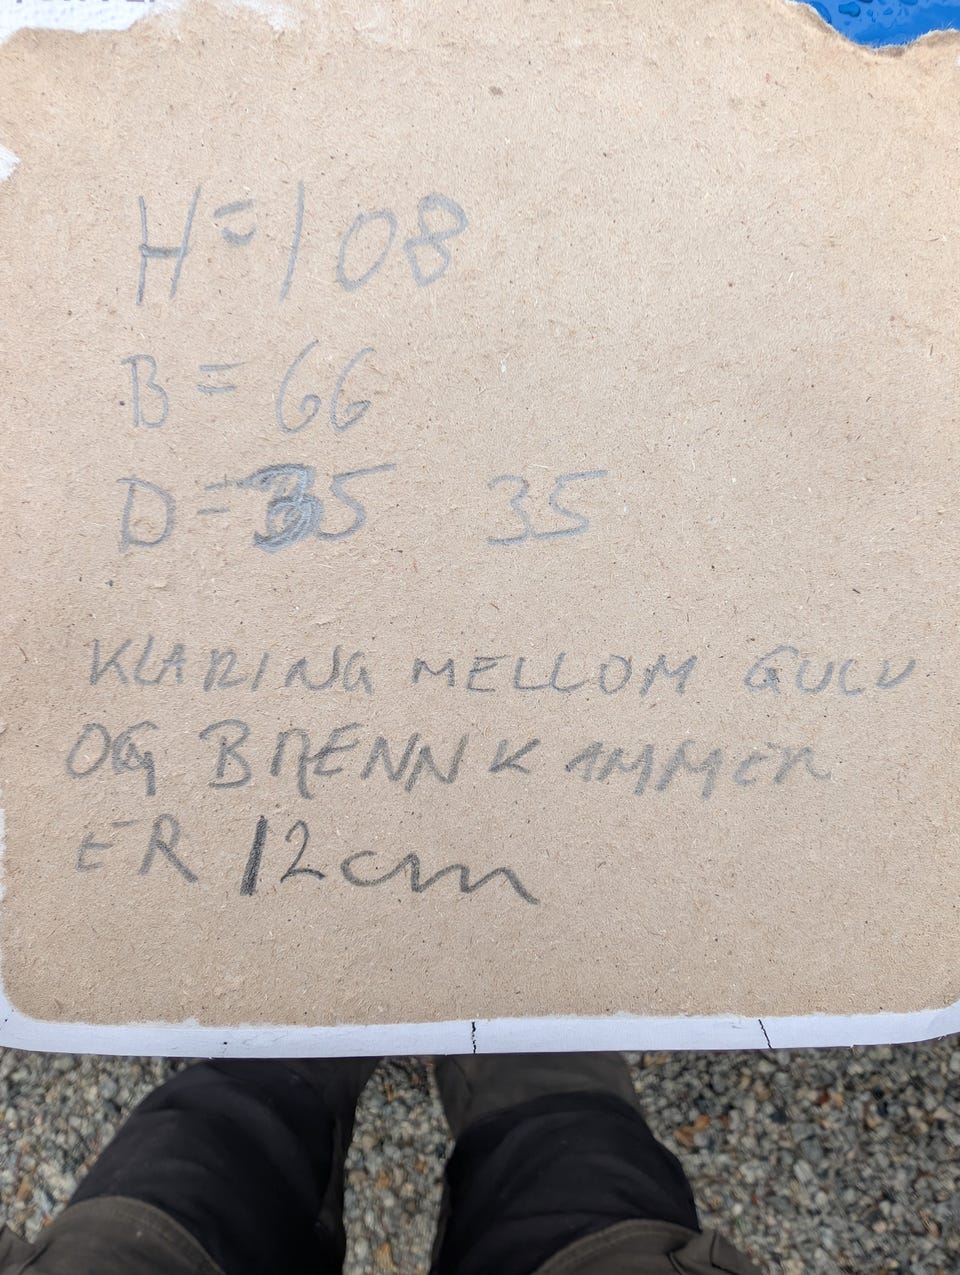 H=108
B=66
D=35 35
KLARING MELLOM GULV
OG BRENNKAMMER
ER 12cm